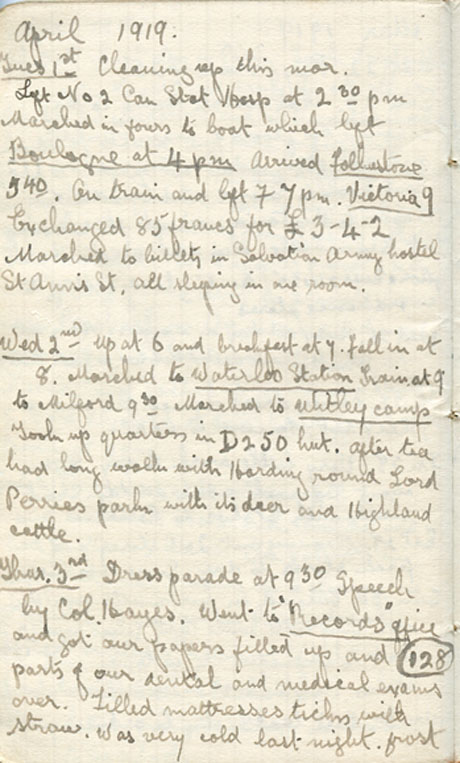 April 1919.
Tues 1st Cleaning up this mor.
Left No 2 Can Stat Hosp at 2 30 pm
Marched in fours to boat which left
Boulogne at 4 pm Arrived Folkestone
5 40. On train and left 7 7 pm. Victoria 9
Exchanged 85 francs for £ 3-4-2
Marched to billets in Salvation Army hostel
St Ann's St, all sleeping in one room.
Wed 2nd Up at 6 and breakfast at 7. fall in at
8. Marched to Waterloo Station Train at 9
to Milford 9 30 Marched to Witley camp
Took up quarters in D250 hut. After tea
had long walk with Harding round Lord
Perries park with its deer and Highland
cattle.
Thur. 3rd Dress parade at 9 30 Speech
by Col. Hayes. Went to "Records" office
and got our papers filled up and 128
parts of our dental and medical exams
over. Filled mattresses ticks with
straw. Was very cold last night. frost